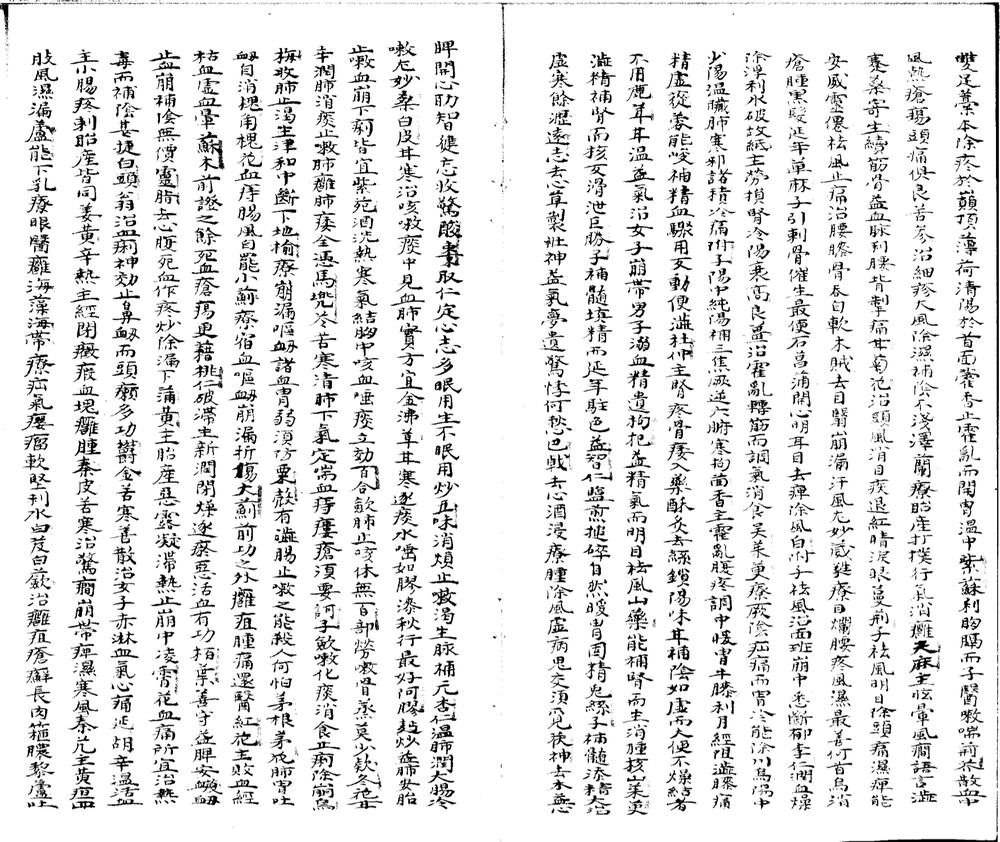 雙足藁本除疼於巔頂薄荷清陽於首面藿香止霍亂而開胃溫中紫蘇利胸膈而子醫嗽喘前散血中
風熱瘡瘍頭痛俱良苦參治細疹大風除濕補陰不淺澤蘭療胎產打撲行氣消癰天麻主眩暈風癎語言澁
蹇桑寄生續筋骨益血脉利腰背掣痛甘菊花治頭風消目疾退紅睛淚眼蔓荆子祛風明目除頭痛濕痺能
安威靈僊祛風止痛治腰膝骨自軟木賊去目翳崩漏汗風尤妙療目爛腰疼風濕最善何首烏消
瘡腫黑髮延年草麻子引刺骨催生最便石菖蒲開心明耳目去痺除風白附子祛風治面班崩中悉斷郁李仁潤血燥
除浮利水破故紙主勞損腎冷陽衰高良薑治霍亂轉筋而調氣消食吴茱萸療厥陰疝痛而胃冷能除川烏陽中
少陽温臟肺寒邪諸積冷痛附子陽中純陽補三焦厥逆六腑寒拘茴香主霍亂腹疼調中暖胃牛膝利月經阻澁膝痛
精虛從蒙能峻補精血驟用反動便澁杜仲主腎疼骨痿入藥酥炙去絲鎖陽味甘補陰如虛而大便不燥結者
不用鹿茸甘温益氣治女子崩帶男子溺血精遺枸杞益精氣而明目祛風山藥能補腎而主消腫核山茱萸
澁精補腎而核反滑泄巨勝子補髓填精而延年駐色益智仁塩煎搥碎自然暖胃固精兎絲子補髓添精大治
虛寒餘瀝遠志去心草製壯神益氣夢遺驚悸何愁巴戟去心酒浸療腫除風虛病思交須覓茯神去木益心
脾開心肋智健忘收驚酸棗取仁定心志多眠用生不眠用炒五味消煩止嗽渴生脉補元杏仁温肺潤大腸冷
嗽尤妙桑白皮甘寒治咳嗽痰中見血肺實方宜金沸草甘寒逐痰水唾如膠漆秋行最好阿膠麩炒益肺安胎
止嗽血崩下痢皆宜紫苑酒洗熱寒氣結胸中咳血唾痰立効百合歛肺止咳休無百部勞嗽骨蒸莫少欵冬花甘
辛潤肺消痰止嗽肺癰肺痿全憑馬兜苓苦寒清肺下氣定喘血痔瘻瘡須要訶子歛嗽化痰消食止痢除崩烏
梅收肺止渴生津和中斷下地榆療崩漏嘔衂諸血胃弱須防粟殼有澁腸止嗽之能殺人何怕茅根茅花肺胃吐
衂自消槐角槐花血痔腸風白罷小薊療宿血嘔衂崩漏折傷大薊前功之外癰疽腫痛還醫紅花主敗血經
枯血虛血暈蘇木前證之餘死血瘡瘍更藉桃仁破滯生新潤閉燥逐瘀惡活血有功栢葉善守益脾安衂
止血崩補陰無價靈脂去心腹死血作疼炒除漏下蒲黄主胎產惡露凝滯熱止崩中凌霄花血痛所宜治熱
毒而補陰甚捷白頭翁治血痢神効止鼻衂而頭癩多功欝金苦寒善散治女子赤淋血氣心痛延胡辛温活血
主小腸疼刺胎產皆同姜黄辛熱主經閉癥瘕血塊癰腫秦皮苦寒治驚癎崩帶痺濕寒風秦艽主黄疸四
肢風濕漏蘆能下乳療眼醫癰海藻海帶療疝氣癭瘤軟堅利水白芨白蘞治癰疽瘡癬長肉箍膿藜蘆吐